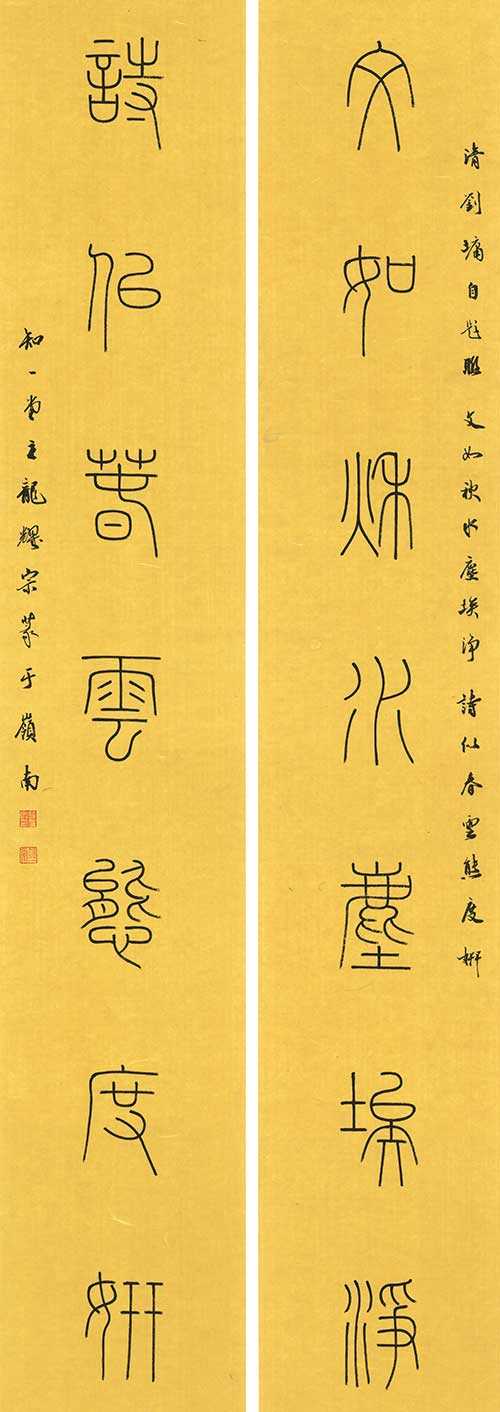 清劉墉自題聯 文如秋水塵埃淨 詩似春雲態度妍
文如秋水塵埃淨
詩似春雲態度妍
知一堂主龍耀宗篆于嶺南